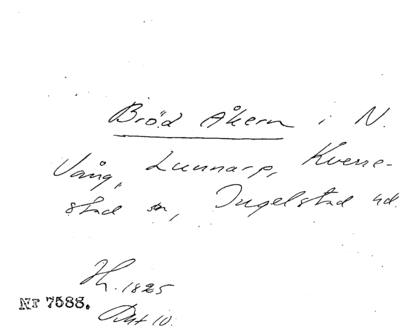 Bröd Åkern i N.
Vång, Lunnarp, Kverre-
stad sn, Ingelstad hd.
H. 1825
Akt 10.
Nr 7588.